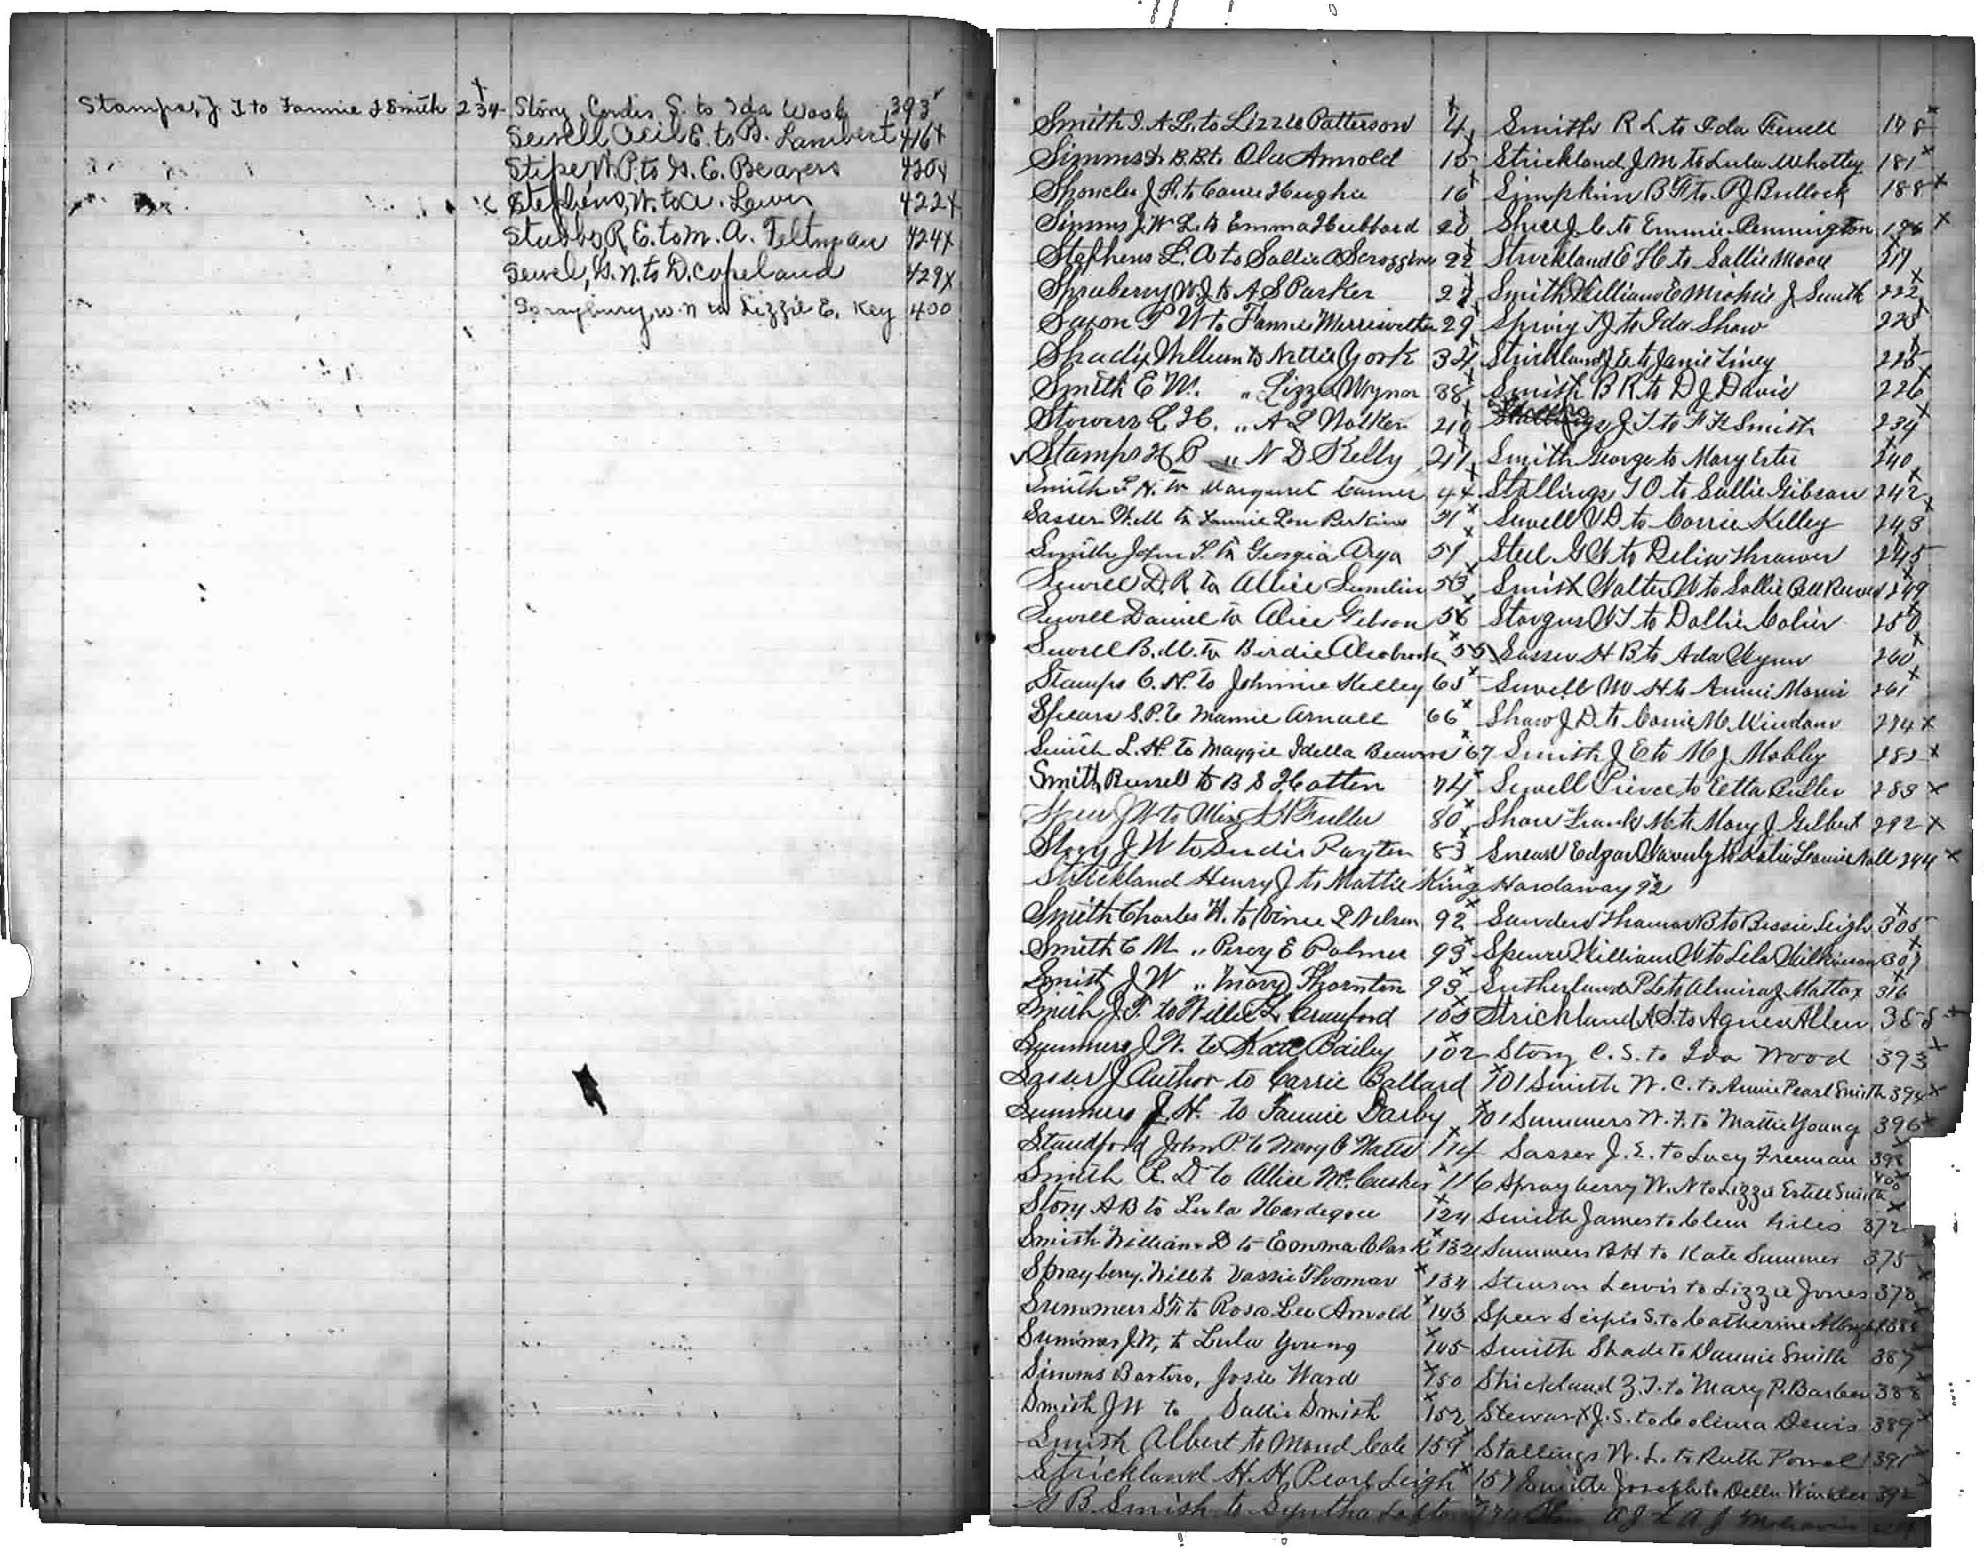 Stamps, J. T. to Fannie J Smith 234
Story, Cordis S. to Ida Wood 393
Sewell Acil E. to B. Lambert 416 x
Stipe, W. P. to G. E. Beavers 420 x
Stephens, W. to A. Lewis 422 x
Stubbs, R. E. to M. A. Feltman 424 x
Sewel, G. N. to D. Copeland 429 x
Spraybury, W. N to Lizzie E. Key 400
Smith A. L. to Lizzie Patterson 4
Simms B. B. to Ola Arnold 15
J. to Hughie 16
Simms J. W. L. to Emma Hubbard 20
Stephens L. A to Sallie Scroggins 22
Spruberry W J to A S Parker
Saxon to Fannie Merriwether 29
Shadix William to Nettie York 34
Smith E W. " Lizzie Wynn 38
Stowers L H. " A L Walker 210
Stamps " N D Kelly 211
Smith to Margaret 44
Sasser Will to Fannie Lou Perkins 51
Smith John to Georgia 51
Sewell D. R. to Allice Sumlin 53
Sewell Daniel to Alice Gibson 56
Sewell B. M. to Birdie Alsobrook 55
Stamps C. N. to Johnnie Kelley 65
Spears S. P. to Mamie Arnall 66
Smith L. H. to Maggie Idella Beavers 67
Smith Russell to B S Hatten 74
J W to Miss Fuller 80
Story J W to Susie Payton 83
Strickland Henry J to Mattie King Hardaway 92
Smith Charles H. to Vinee P Nelson 92
Smith C M. " Percy E Palmer 93
Smith J W " Mary Thornton 93
Smith J. T. to Willie L Crawford 105
Summers J. W. to Kate Bailey 102
Sasser J Author to Carrie Ballard 101
Summers J. H. to Fannie Darby 101
Standford John P. to Mary C Watts 114
Smith R. D to Allice McCusker 116
Story A B to Lula Hardegree 124
Smith William D to Emma Clark 132
Sprayberry, Will to Vassie Thomas 134
Summers S F. to Rosa Lee Arnold 143
Summers J W, to Lula Young 145
Simms Bartow, Josie Ward 150
Smith J W to Sallie Smith 152
Smith Albert to Maud Cole 159
Strickland H. H. Pearl Leigh 157
G B. Smith to Syntha
Smith R L to Ida 178
Strickland J M to Lula Whatley 181
Simpkin B F to P J Bullock 188
J. C. to Emmie Pennington 196
Strickland E H to Sallie Moore 217
Smith William E Minnie J Smith 222
T J to Ida Shaw 223
Strickland J to Janie 225
Smith B R to D J Davis 226
J T to F F Smith 234
Smith George to Mary Ester 240
Stallings T O to Sallie Gibson 242
Sewell V D. to Carrie Kelley 243
Steel G W to Delia Thrower 245
Smith Walter W to Sallie Bell Reeves 249
W T to Dollie 250
Sasser H B to Ada Wynn 260
Sewell W H to Annie Morris 261
Shaw J D. to Carrie M. Windom 274 x
Smith J E to M J Mobley 282 x
Sewell Pierce to Etta Butler 283 x
Shaw Frank M to Mary J Gilbert 292 x
Snead Edgar Waverly to Katie Leonie Nall 294 x
Sanders Thomas B to Bessie Leigh 305
Spence William W to Lela Wilkinson 307
Sutherland P L to Almira J Mattox 316
Strickland A. S. to Agnes Allen 388
Story C. S. to Ida Wood 393
Smith W. C. to Annie Pearl Smith 394 x
Summers W. F. to Mattie Young 396
Sasser J. E. to Lucy Freeman 398
Sprayberry W. N to Lizzie Estell Smith 400
Smith James to Clem Giles 372
Summers B H to Kate Summer 375
Stenson Lewis to Lizzie Jones 378
Speer Scipio S. to Catherine
Smith Shade to Dannie Smith 387
Strickland Z. T. to Mary P. Barber 388
Stewart J. S. to Celima Davis 389
Stallings W. L. to Ruth Powel 391
Smith Joseph to Della Winkles 392